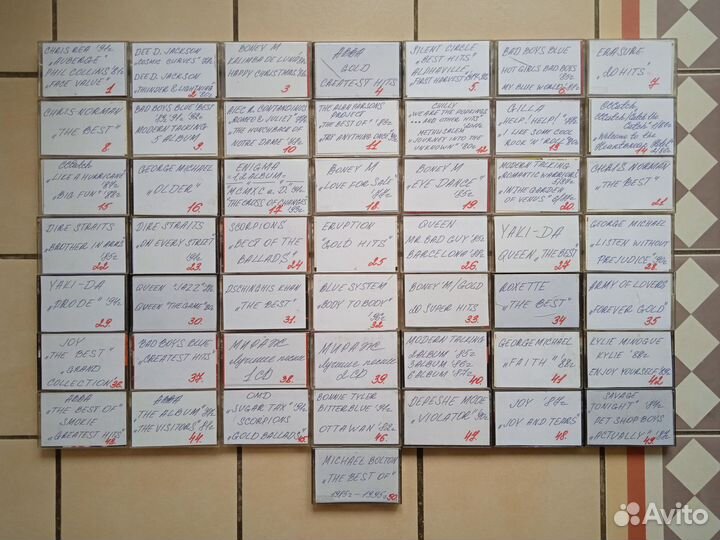 CHRIS REA '91г.
„AUBERGE"
PHIL COLLINS '81г.
„FACE VALUE"
1
DEE D. JACKSON
„COSMIC CURVES" '78г.
DEE D. JACKSON
„THUNDER & LIGHTNING
2
BONEY M
KALIMBA DE LUNA '84г.
HAPPY CHRISTMAS
3
ABBA
GOLD
GREATEST HITS
4
SILENT CIRCLE
„BEST HITS"
ALPHAVILLE
„FIRST HARVEST
5.
BAD BOYS BLUE
HOT GIRLS BAD BOYS
'85г.
MY BLUE WORLD
6
ERASURE
„20 HITS"
7
CHRIS NORMAN
„THE BEST"
8
BAD BOYS BLUE'BEST
MODERN TALKING
5 ALBUM
9.
ALEC R. COSTANDINOUS
„ROMEO & JULIET"
„THE HUNCHBACK OF
NOTRE DAME"
10
THE ALAN PARSONS
PROJECT
„THE BEST OF"
„TRY ANYTHING ONCE"
11
CHILLY
„WE ARE THE POPKINGS
...AND OTHER HITS"
METHUSALEM
„JOURNEY INTO THE
UNKNOWN" '80г.
12
GILLA
„HELP! HELP!"
„I LIKE SOME COOL
ROCK 'N' ROLL" '80г.
13
CCCatch
„Welcome to the
14
CCCatch
„LIKE A HURRICANE"
'87г.
„BIG FUN" '88г.
15
GEORGE MICHAEL
„OLDER"
16.
ENIGMA
1,2 ALBUM
„MCMXC a. D." '90г.
„THE CROSS OF CHANGES"
'93г.
17
BONEY M
„LOVE FOR SALE"
18
BONEY M
„EYE DANCE"
19.
MODERN TALKING
„ROMANTIC WARRIORS"
„IN THE GARDEN
OF VENUS"
20
CHRIS NORMAN
„THE BEST"
21
DIRE STRAITS
„BROTHER IN ARMS"
'85г.
22
DIRE STRAITS
„ON EVERY STREET"
'91г.
23.
SCORPIONS
„BEST OF THE
BALLADS"
24
ERUPTION
„GOLD HITS"
25
QUEEN
MR. BAD GUY '85г.
BARCELONA '88г.
26.
YAKI-DA
QUEEN „THE BEST"
27
GEORGE MICHAEL
„LISTEN WITHOUT
PREJUDICE"
28.
YAKI-DA
„PRIDE" '94г.
29.
QUEEN „JAZZ" '78г.
QUEEN „THE GAME" '80г.
30.
DSCHINGHIS KHAN
„THE BEST"
31.
BLUE SYSTEM
„BODY TO BODY"
32
BONEY M/GOLD
20 SUPER HITS
33.
ROXETTE
„THE BEST"
34
ARMY OF LOVERS
„FOREVER GOLD"
35
JOY
„THE BEST"
GRAND
COLLECTION"
36.
BAD BOYS BLUE
„GREATEST HITS"
37.
МИРАЖ
Лучшие песни
1CD
38.
МИРАЖ
Лучшие песни
2CD
39.
MODERN TALKING
2 ALBUM '85г.
5 ALBUM '87г.
6 ALBUM '87г.
40.
GEORGE MICHAEL
„FAITH" '88г.
41
KYLIE MINOGUE
KYLIE '88г.
ENJOY YOURSELF
42
ABBA
„THE BEST OF"
SMOKIE
„GREATEST HITS"
43
ABBA
„THE ALBUM"
„THE VISITORS" '81г.
44.
OMD
„SUGAR TAX" '91г.
SCORPIONS
„GOLD BALLADS"
45
BONNIE TYLER
BITTERBLUE '91г.
OTTAWAN '80г.
46.
DEPESHE MODE
„VIOLATOR" '90г.
47.
JOY '86г.
„JOY AND TEARS"
48.
SAVAGE
„TONIGHT" '84г.
PET SHOP BOYS
„ACTUALLY"
49.
MICHAEL BOLTON
„THE BEST OF"
1985г. – 1995г.
50.
Avito